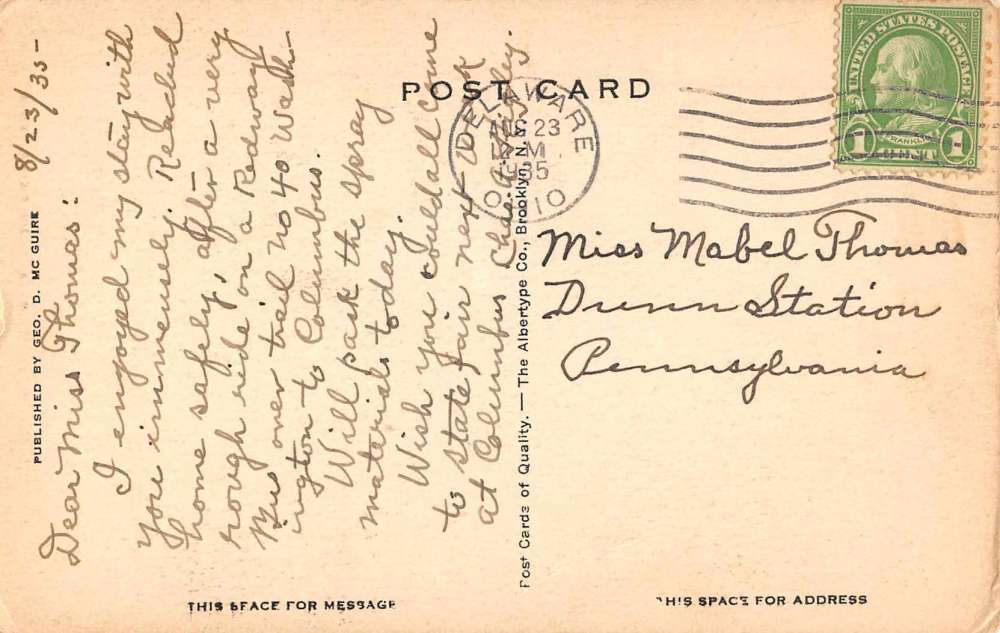 8/23/35-
Dear Miss Thomas:
I enjoyed my stay with
you immensely. Reached
home safely, after a very
rough ride on a Redway
Bus over trail no 40 Wash-
ington to Columbus.
Will pack the spray
materials today.
Wish you could all come
to state fair next week
at Columbus
PUBLISHED BY GEO. D. MC GUIRE
THIS SPACE FOR MESSAGE
Post Cards of Quality. — The Albertype Co., Brooklyn, N.Y.
POST CARD
DELAWARE
AUG 23
M
1935
OHIO
UNITED STATES POSTAGE
FRANKLIN
1 CENT 1
Miss Mabel Thomas
Dunn Station
Pennsylvania
THIS SPACE FOR ADDRESS